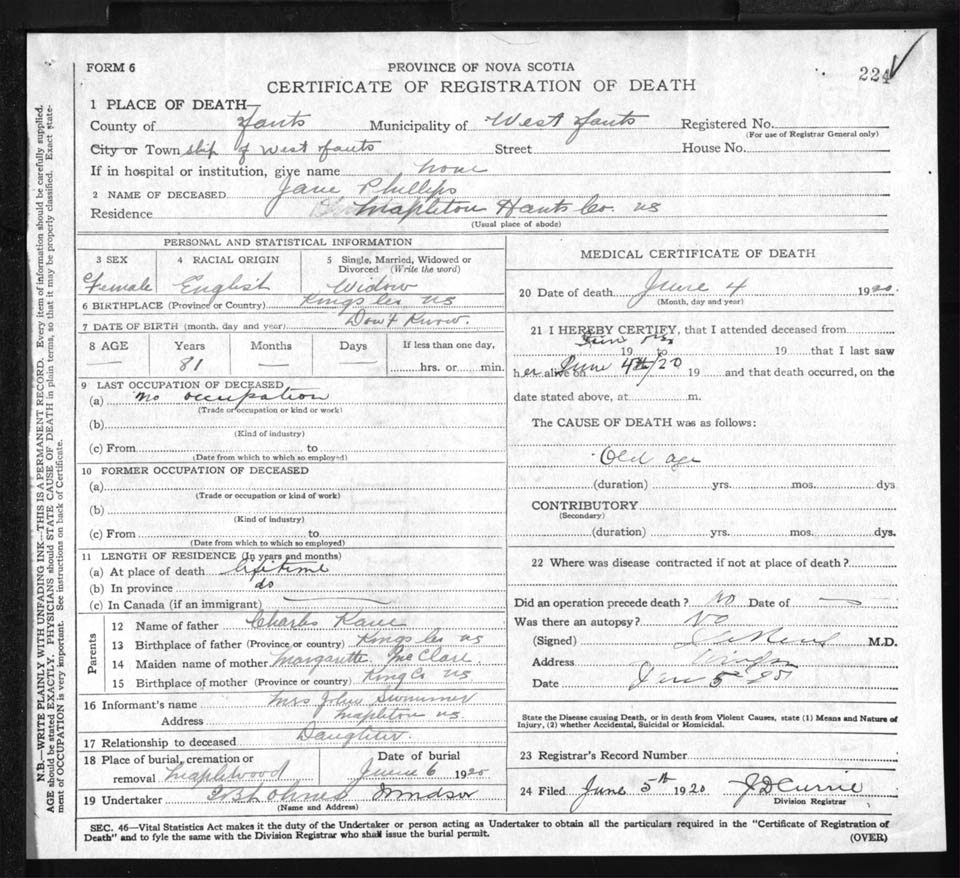 FORM 6
PROVINCE OF NOVA SCOTIA
224
CERTIFICATE OF REGISTRATION OF DEATH
1 PLACE OF DEATH—
County of Hants Municipality of West Hants Registered No.
(For use of Registrar General only)
City or Town ship of West Hants Street House No.
If in hospital or institution, give name none
2 NAME OF DECEASED Jane Phillips
Residence Mapleton Hants Co. NS
(Usual place of abode)
PERSONAL AND STATISTICAL INFORMATION
3 SEX 4 RACIAL ORIGIN 5 Single, Married, Widowed or Divorced (Write the word)
Female English Widow
6 BIRTHPLACE (Province or Country) Kings Co NS
7 DATE OF BIRTH (month, day and year) Don't Know.
8 AGE Years Months Days If less than one day,
— 81 — — hrs. or min.
9 LAST OCCUPATION OF DECEASED
(a) no occupation
(Trade or occupation or kind or work)
(b)
(Kind of industry)
(c) From to
(Date from which to which so employed)
10 FORMER OCCUPATION OF DECEASED
(a)
(Trade or occupation or kind of work)
(b)
(Kind of industry)
(c) From to
(Date from which to which so employed)
11 LENGTH OF RESIDENCE (In years and months)
(a) At place of death lifetime
(b) In province do
(c) In Canada (if an immigrant)
Parents
12 Name of father Charles Kane
13 Birthplace of father (Province or country) Kings Co NS
14 Maiden name of mother Margarette McClare
15 Birthplace of mother (Province or country) King Co NS
16 Informant's name Mrs John Swimmer
Address Mapleton NS
17 Relationship to deceased Daughter
18 Place of burial, cremation or Date of burial
removal Maplewood June 6 1920
19 Undertaker Windsor
(Name and Address)
MEDICAL CERTIFICATE OF DEATH
20 Date of death June 4 1920.
(Month, day and year)
21 I HEREBY CERTIFY, that I attended deceased from
19 to 19 that I last saw
her alive on June 4th/20 19 and that death occurred, on the
date stated above, at m.
The CAUSE OF DEATH was as follows:
Old age
(duration) yrs. mos. dys
CONTRIBUTORY
(Secondary)
(duration) yrs. mos. dys.
22 Where was disease contracted if not at place of death?
Did an operation precede death? no Date of —
Was there an autopsy? no
(Signed) M.D.
Address
Date
State the Disease causing Death, or in death from Violent Causes, state (1) Means and Nature of
Injury, (2) whether Accidental, Suicidal or Homicidal.
23 Registrar's Record Number
24 Filed June 5th 1920 J D Currie
Division Registrar
SEC. 46—Vital Statistics Act makes it the duty of the Undertaker or person acting as Undertaker to obtain all the particulars required in the "Certificate of Registration of
Death" and to fyle the same with the Division Registrar who shall issue the burial permit.
(OVER)
N.B.—WRITE PLAINLY WITH UNFADING INK—THIS IS A PERMANENT RECORD. Every item of information should be carefully supplied.
AGE should be stated EXACTLY. PHYSICIANS should STATE CAUSE OF DEATH in plain terms, so that it may be properly classified. Exact state-
ment of OCCUPATION is very important. See instructions on back of Certificate.